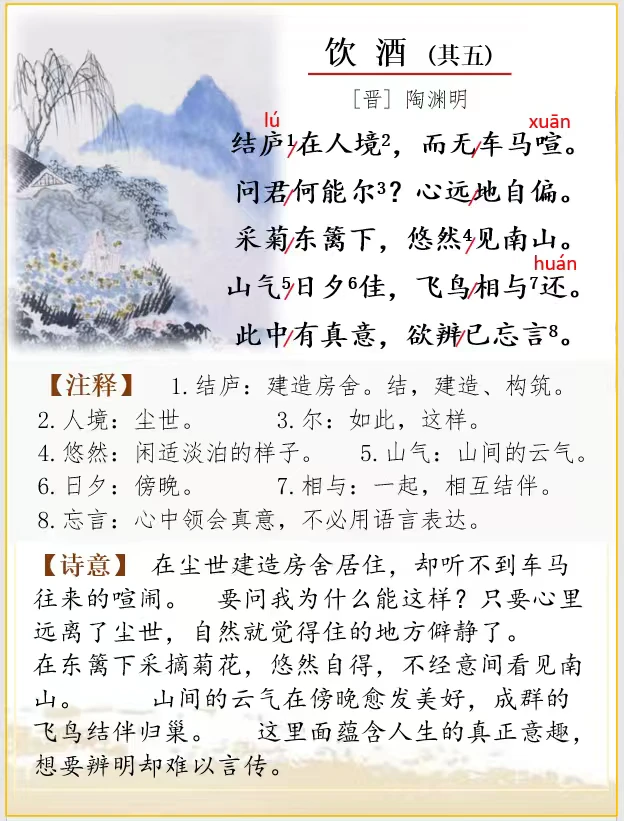 饮 酒 (其五)
[晋] 陶渊明
lú xuān
结庐¹/在人境²，而无/车马喧。
问君/何能尔³？心远/地自偏。
采菊/东篱下，悠然⁴/见南山。
huán
山气⁵/日夕⁶佳，飞鸟/相与⁷还。
此中/有真意，欲辨/已忘言⁸。
【注释】 1.结庐：建造房舍。结，建造、构筑。
2.人境：尘世。 3.尔：如此，这样。
4.悠然：闲适淡泊的样子。 5.山气：山间的云气。
6.日夕：傍晚。 7.相与：一起，相互结伴。
8.忘言：心中领会真意，不必用语言表达。
【诗意】 在尘世建造房舍居住，却听不到车马
往来的喧闹。 要问我为什么能这样？只要心里
远离了尘世，自然就觉得住的地方僻静了。
在东篱下采摘菊花，悠然自得，不经意间看见南
山。 山间的云气在傍晚愈发美好，成群的
飞鸟结伴归巢。 这里面蕴含人生的真正意趣，
想要辨明却难以言传。